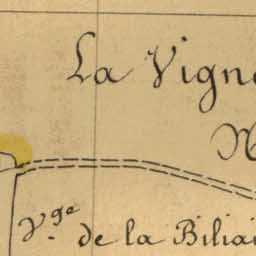 La Vigne
N
V.ge de la Biliai